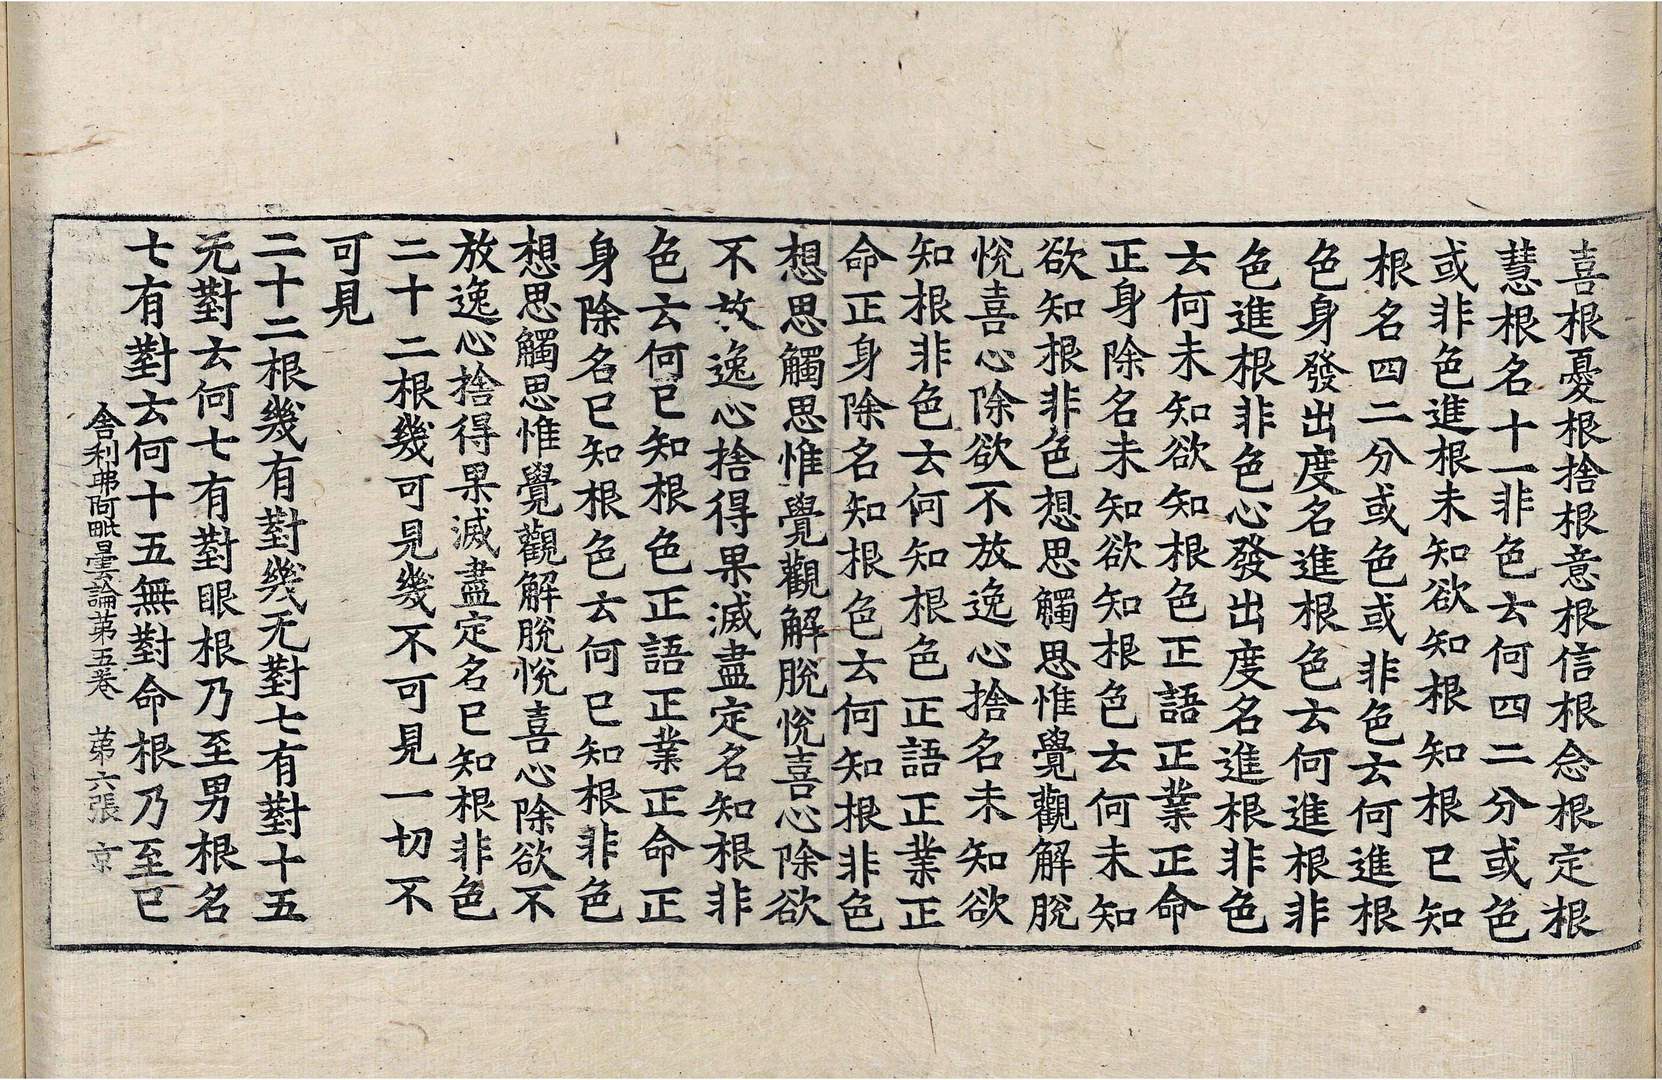 喜根憂根捨根意根信根念根定根
慧根名十一非色云何四二分或色
或非色進根未知欲知根知根已知
根名四二分或色或非色云何進根
色身發出度名進根色云何進根非
色進根非色心發出度名進根非色
云何未知欲知根色正語正業正命
正身除名未知欲知根色云何未知
欲知根非色想思觸思惟覺觀解脫
悅喜心除欲不放逸心捨名未知欲
知根非色云何知根色正語正業正
命正身除名知根色云何知根非色
想思觸思惟覺觀解脫悅喜心除欲
不放逸心捨得果滅盡定名知根非
色云何已知根色正語正業正命正
身除名已知根色云何已知根非色
想思觸思惟覺觀解脫悅喜心除欲不
放逸心捨得果滅盡定名已知根非色
二十二根幾可見幾不可見一切不
可見
二十二根幾有對幾无對七有對十五
无對云何七有對眼根乃至男根名
七有對云何十五無對命根乃至已
舍利弗阿毗曇論第五卷 第六張 京